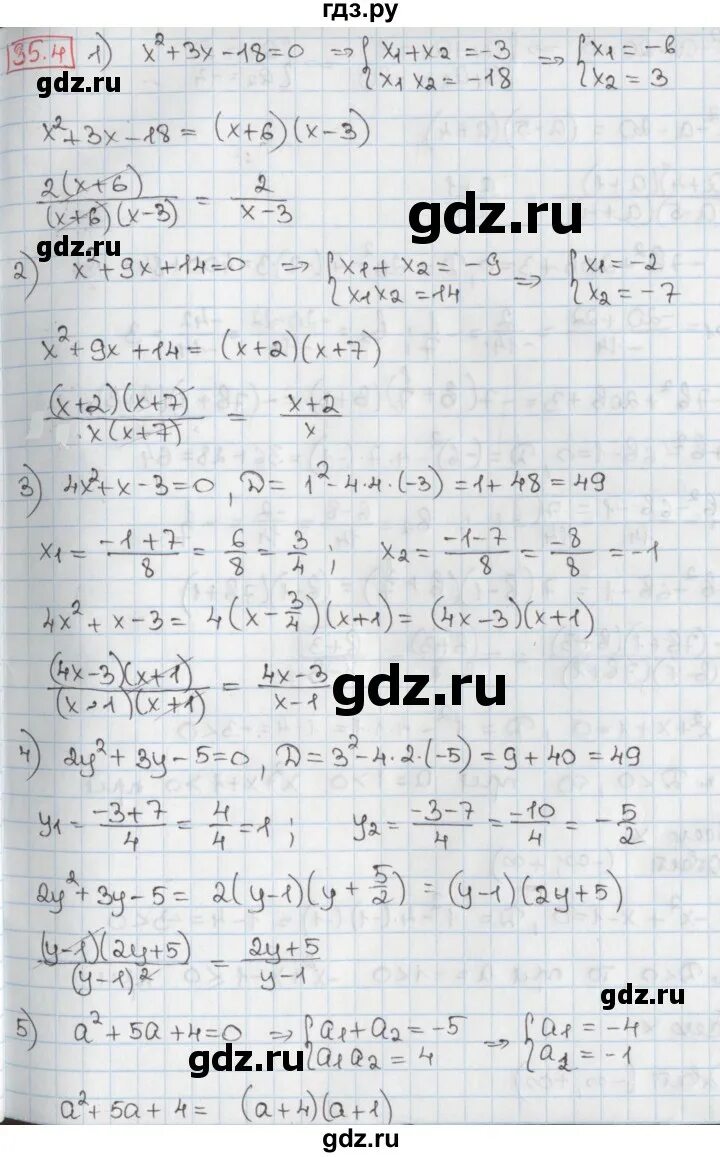 гдз.ру
35.4 1) x²+3x-18=0 ⇒ {x1+x2=-3 ⇒ {x1=-6
{x1x2=-18 {x2=3
gdz.ru
x²+3x-18=(x+6)(x-3)
2(x+6)/(x+6)(x-3) = 2/x-3
gdz.ru
gdz.ru
2) x²+9x+14=0 ⇒ {x1+x2=-9 ⇒ {x1=-2
{x1x2=14 {x2=-7
x²+9x+14=(x+2)(x+7)
(x+2)(x+7)/x(x+7) = x+2/x
3) 4x²+x-3=0, D=1²-4·4·(-3)=1+48=49
x1=-1+7/8=6/8=3/4; x2=-1-7/8=-8/8=-1
4x²+x-3=4(x-3/4)(x+1)=(4x-3)(x+1)
(4x-3)(x+1)/(x-1)(x+1)=4x-3/x-1
gdz.ru
4) 2y²+3y-5=0, D=3²-4·2·(-5)=9+40=49
y1=-3+7/4=4/4=1; y2=-3-7/4=-10/4=-5/2
2y²+3y-5=2(y-1)(y+5/2)=(y-1)(2y+5)
(y-1)(2y+5)/(y-1)²=2y+5/y-1
gdz.ru
5) a²+5a+4=0 ⇒ {a1+a2=-5 ⇒ {a1=-4
{a1a2=4 {a2=-1
gdz.ru
a²+5a+4=(a+4)(a+1)
gdz.ru